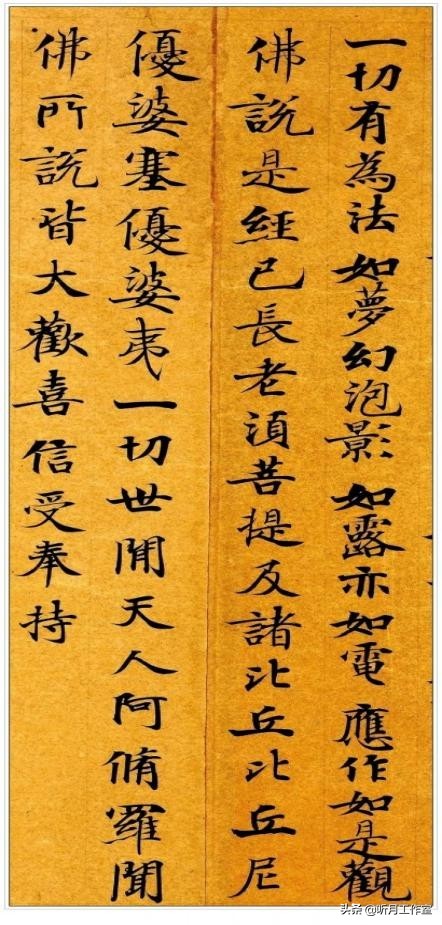 一切有為法如夢幻泡影如露亦如電應作如是觀
佛說是經已長老須菩提及諸比丘比丘尼
優婆塞優婆夷一切世間天人阿脩羅聞
佛所說皆大歡喜信受奉持
头条 @听月工作室